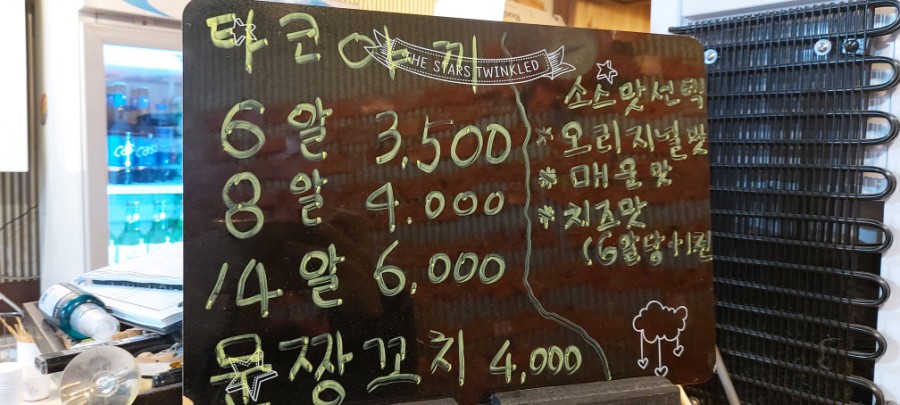 타코야끼
THE STARS TWINKLED
6알 3,500
8알 4.000
14알 6,000
문짱꼬치 4,000
소스맛선택
*오리지널맛
*매운맛
*치즈맛
(6알당+1천